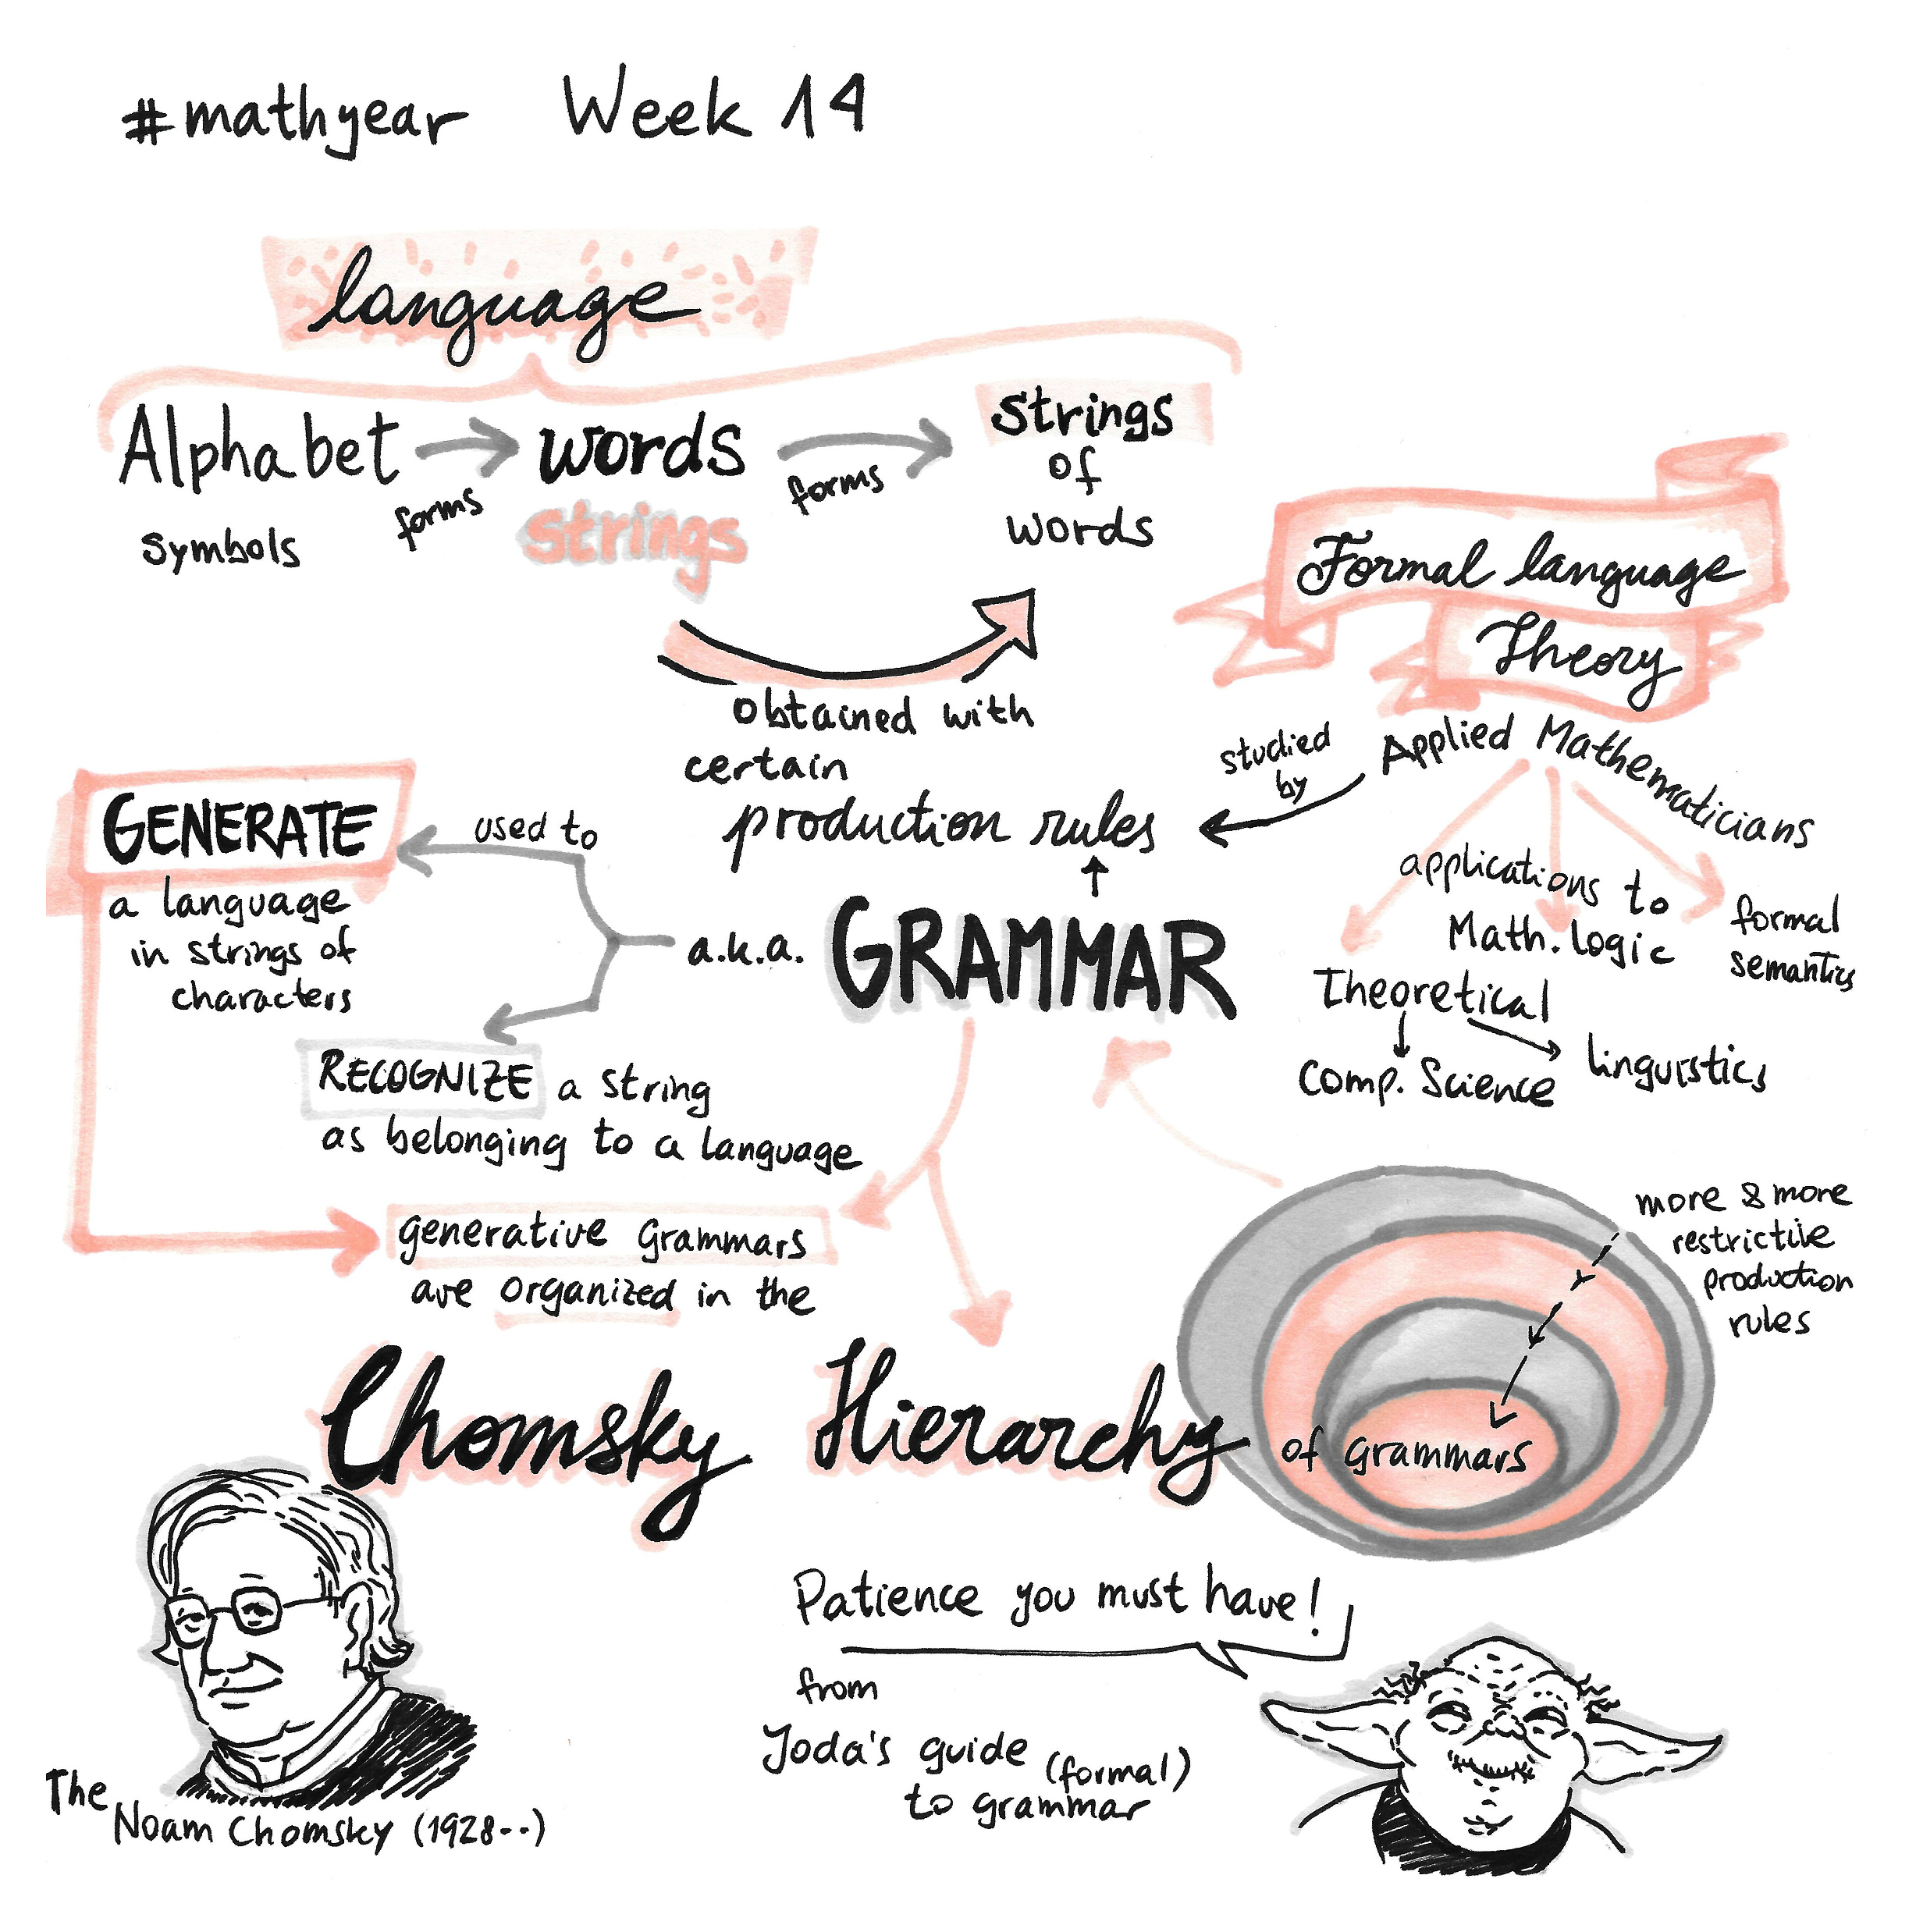 #mathyear Week 14
language
Alphabet
symbols
forms
words
strings
forms
strings
of
words
obtained with
certain
production rules
Formal language
Theory
studied
by
Applied Mathematicians
applications to
Math. logic
formal
semantics
Theoretical
Comp. Science
linguistics
GRAMMAR
a.k.a.
used to
GENERATE
a language
in strings of
characters
RECOGNIZE a string
as belonging to a language
generative grammars
are organized in the
Chomsky Hierarchy of grammars
more & more
restrictive
production
rules
The
Noam Chomsky (1928--)
Patience you must have!
from
Yoda's guide
to (formal)
grammar